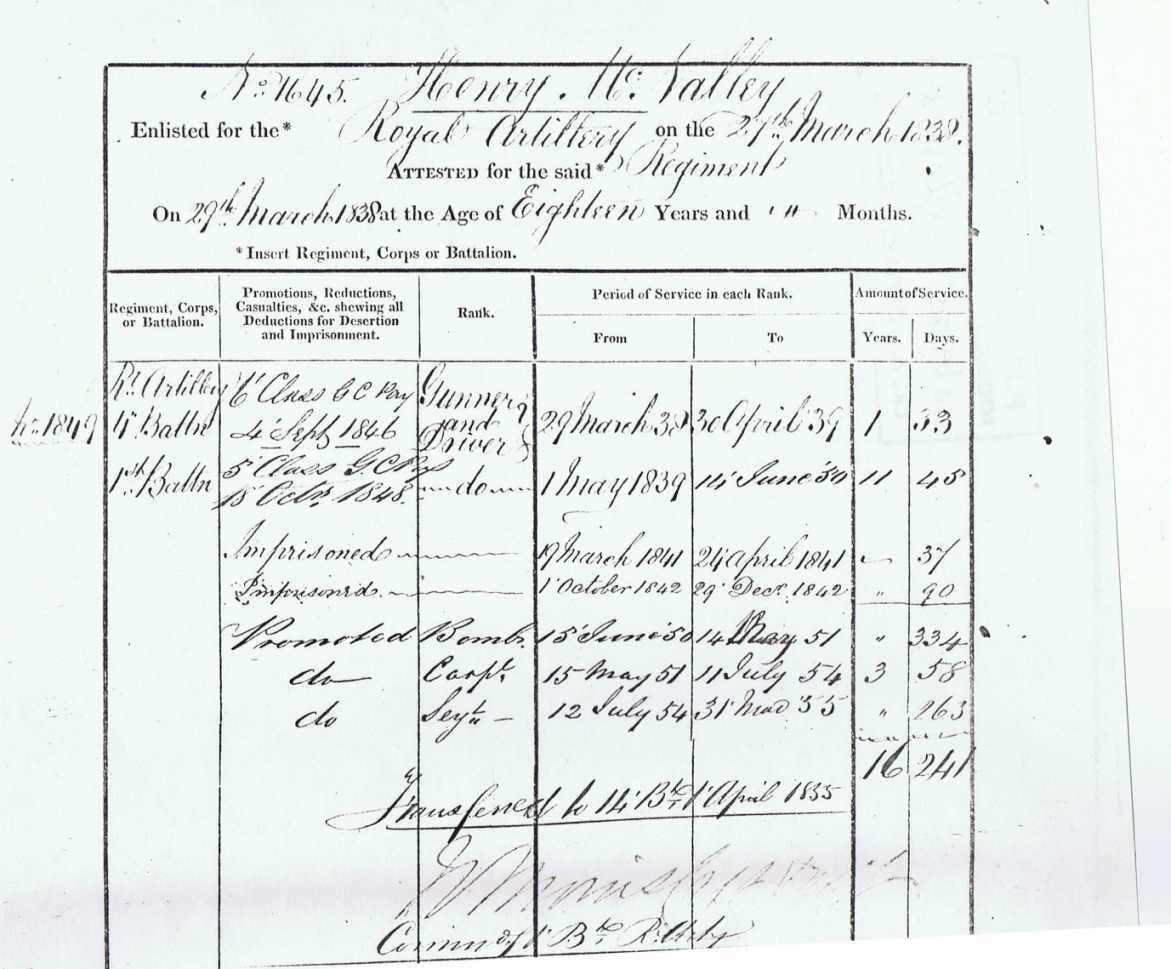 No. 1645. Henry Mc. Nalley
Enlisted for the* Royal Artillery on the 27th March 1838.
ATTESTED for the said* Regiment
On 29th March 1838 at the Age of Eighteen Years and " Months.
*Insert Regiment, Corps or Battalion.
Regiment, Corps, or Battalion.
Promotions, Reductions, Casualties, &c. shewing all Deductions for Desertion and Imprisonment.
Rank.
Period of Service in each Rank.
From
To
Amount of Service.
Years.
Days.
Rl. Artillery 6' Class G C Pay Gunner
No. 1849 4' Battn 4' Sept 1846 and Driver 29 March 38 30 April 39 1 33
1st Battn 5' Class G. C Pay
15' Octr. 1848. do 1 May 1839 14' June 50 11 45
Imprisoned 19 March 1841 24' April 1841 37
Imprisoned. 1' October 1842 29' Decr. 1842 " 90
Promoted Bombr. 15' June 50 14 May 51 " 334
do Corpl. 15 May 51 11 July 54 3 58
do Serjt. 12 July 54 31' Mar 55 " 263
16 241
Transferred to 14' Bn. 1' April 1855
Comm'd'g 1' Bn. Rl. Arty